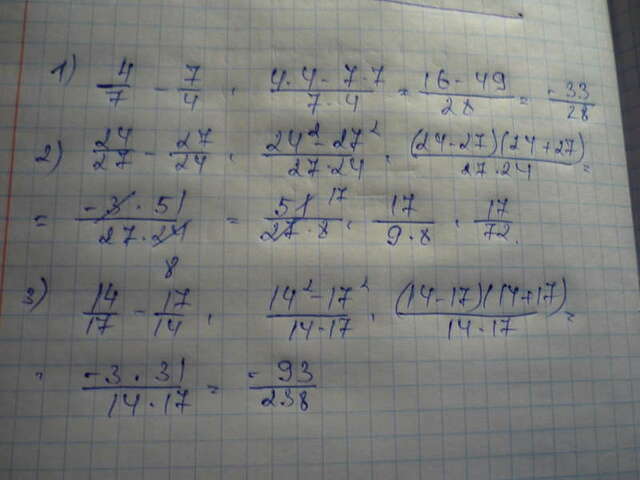 1) 4/7 - 7/4 = (4·4-7·7)/(7·4) = (16-49)/28 = -33/28
2) 24/27 - 27/24 = (24²-27²)/(27·24) = ((24-27)(24+27))/(27·24) =
= (-3·51)/(27·24) 8 = 51 17/(27·8) = 17/(9·8) = 17/72.
3) 14/17 - 17/14 = (14²-17²)/(14·17) = ((14-17)(14+17))/(14·17) =
= (-3·31)/(14·17) = -93/238